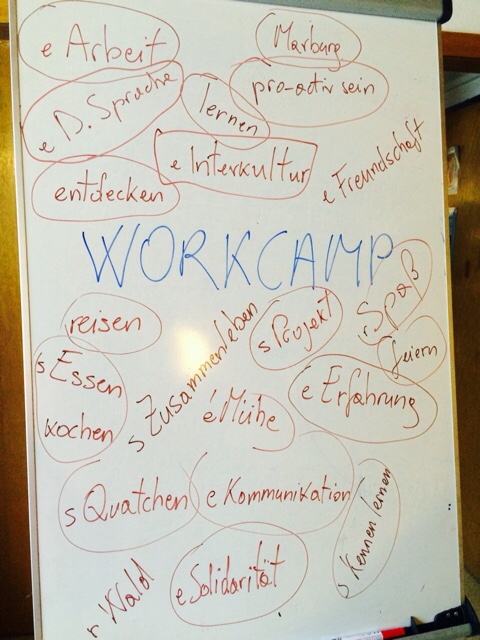 e Arbeit
Marburg
e D. Sprache
lernen
pro-activ sein
e Interkultur
e Freundschaft
entdecken
WORKCAMP
reisen
s Zusammenleben
s Projekt
r Spaß
feiern
s Essen
kochen
e Mühe
e Erfahrung
s Quatchen
e Kommunikation
s Kennenlernen
r Wald
e Solidarität